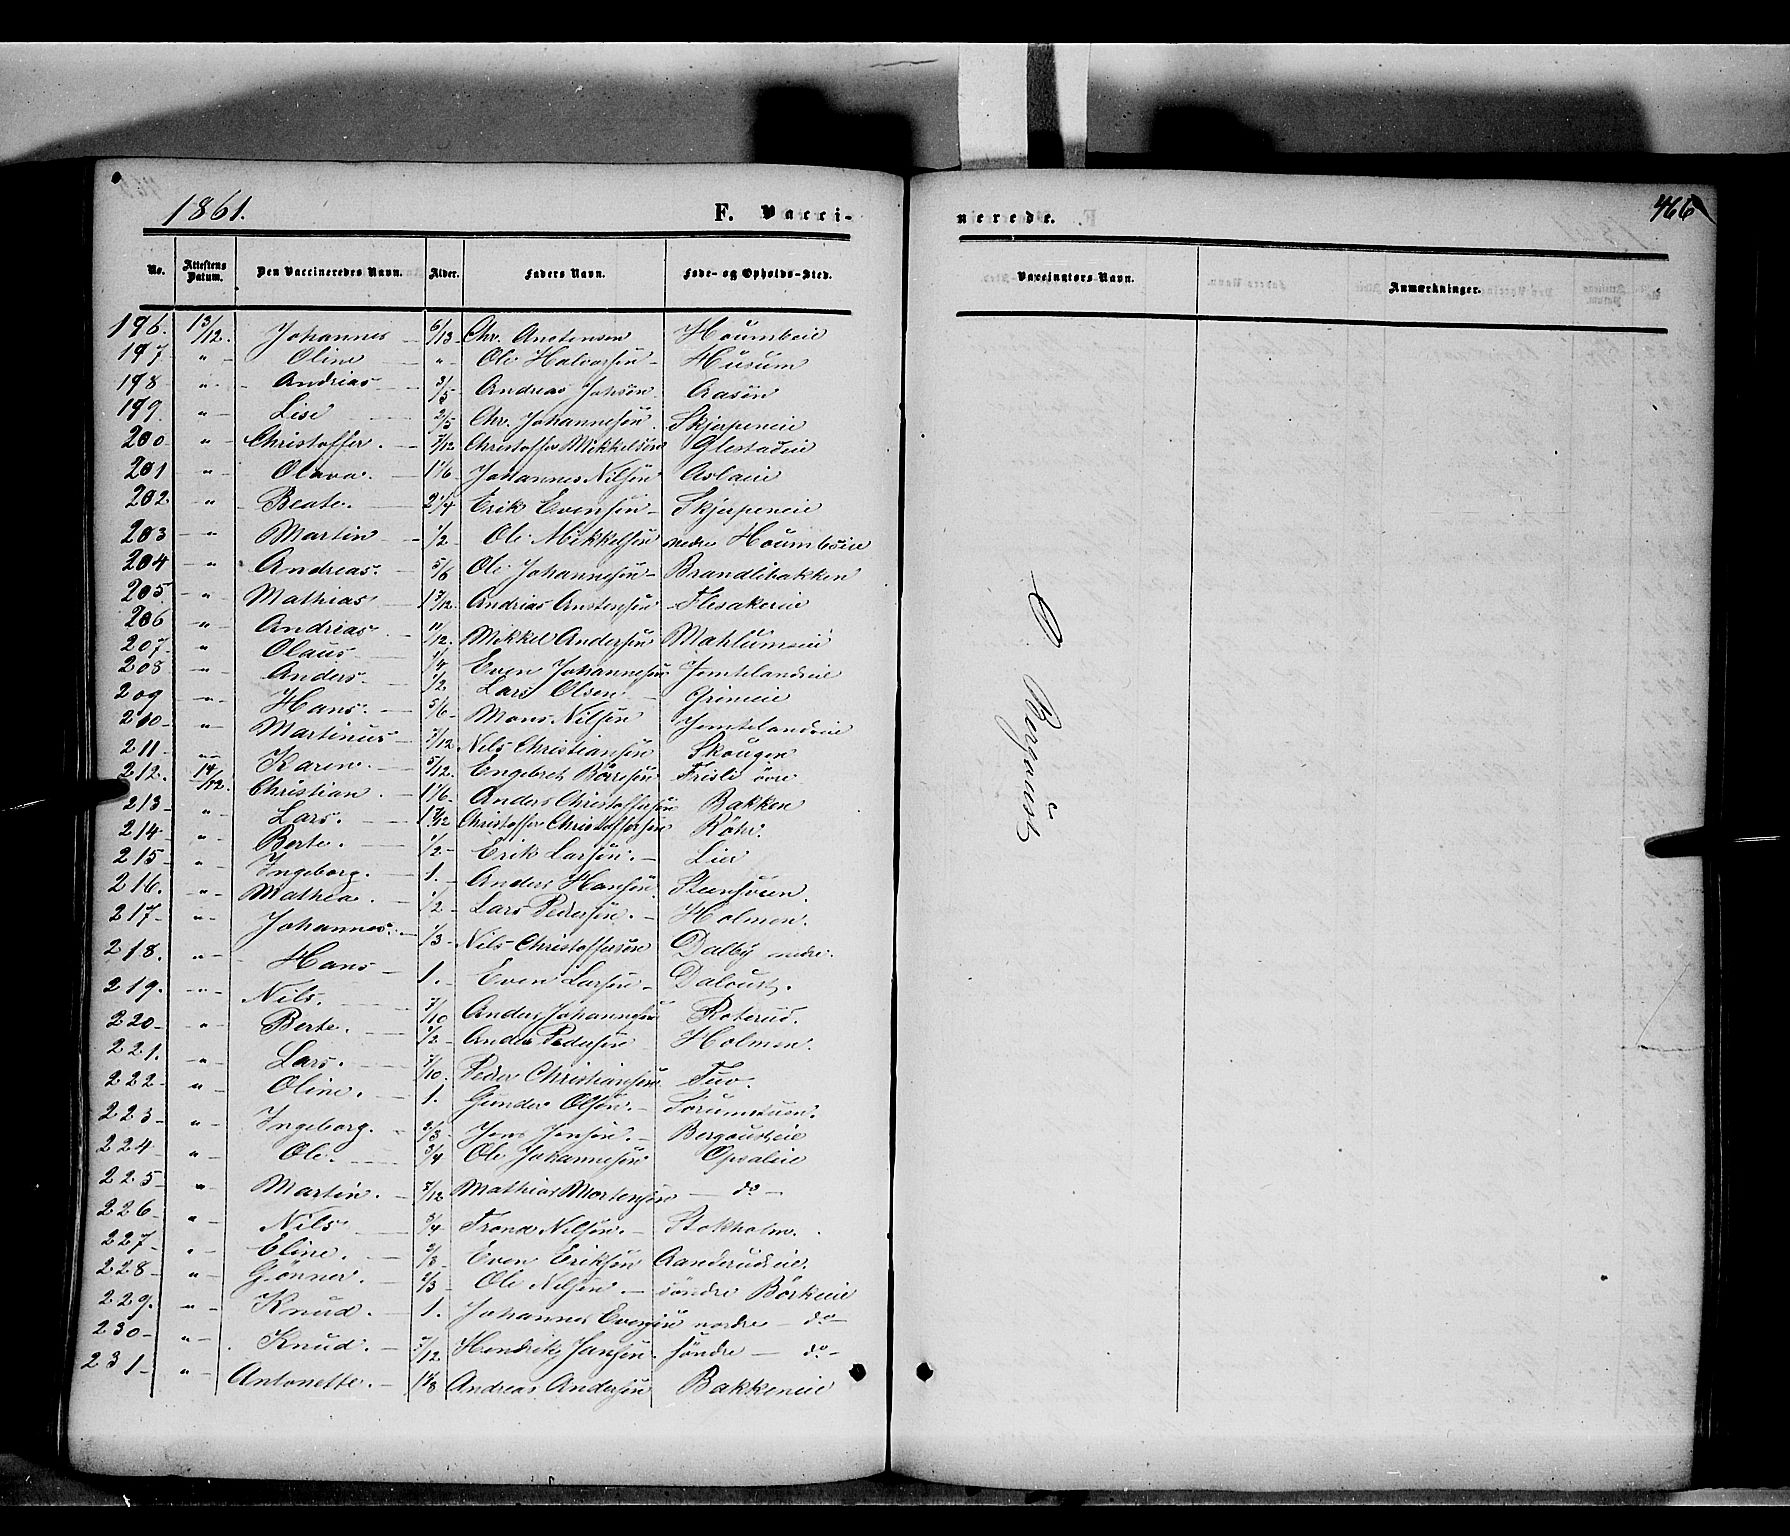 1861. F. Vacci-
nerede. 466
No. Attestens Datum. Den Vaccineredes Navn. Alder. Faders Navn. Føde- og Opholds-Sted. Vaccinators Navn. Anmærkninger.
196. 13/12. Johannes 6/13 Chr. Anstensen Houmbeie
197 " Oline " Ole Halvorsen Husum
198 " Andreas 3/5 Andreas Johsen Aasen
199 " Lise 2/5 Chr. Johannesen Skjerpeneie
200 " Christoffer. 7/12 Christoffer Mikkelsen Glestadeie
201 " Olava. 1 1/6 Johannes Nilsen Aslaeie
202 " Beate. 2 1/4 Erik Evensen Skjerpeneie
203 " Martin 1/2 Ole Mikkelsen nedre Houmbeie
204 " Andreas. 5/6 Ole Johannesen Brandlibakken
205 " Mathias 1 7/12 Andreas Anstensen Flesakereie
206 " Andreas 11/12. Mikkel Andersen Mahlumseie
207 " Olaus 1/4 Even Johannesen Jemtelandseie
208 " Anders 1/2 Lars Olsen. Grimeie
209 " Hans. 5/6 Mons Nilsen Jemtelandseie
210 " Martinus 7/12 Nils Christiansen Skougen
211 " Karen. 5/12. Engebret Børresen Frisli øvre
212. 14/12. Christian. 1 1/6 Anders Christoffersen Bakken
213 " Lars. 1 7/12 Christoffer Christoffersen Røhr.
214 " Berte. 1/2 Erik Larsen. Lier
215 " Ingeborg. 1. Anders Hansen Steenhuen.
216. " Mathea. 1/2 Lars Pedersen. Holmen.
217 " Johannes. 1/3 Nils Christoffersen Dalby nedre.
218. " Hans 1. Even Larsen Daloust.
219. " Nils. 7/10 Anders Johannesen Roterud.
220 " Berte. 1/2 Anders Pedersen Holmen.
221. " Lars. 7/10. Peder Christiansen Tuv.
222 " Oline. 1. Gunder Olsen. Sorumstuen.
223 " Ingeborg. 2/3 Jens Jensen. Bergousteie
224 " Ole. 3/4 Ole Johannesen Opsaleie
225 " Martin. 7/12 Mathias Mortensen do
226 " Nils 3/4 Trond Nilsen. Stokholm.
227 " Eline. 2/3 Even Eriksen Aanderudeie.
228 " Gønner. 2/3 Ole Nilsen. søndre Børkeeie
229. " Knud. 1. Johannes Evensen nordre do
230 " Knud. 7/12 Hendrik Jansen. søndre do
231 " Antonette. 1 1/8 Andreas Andersen Bakkeneie